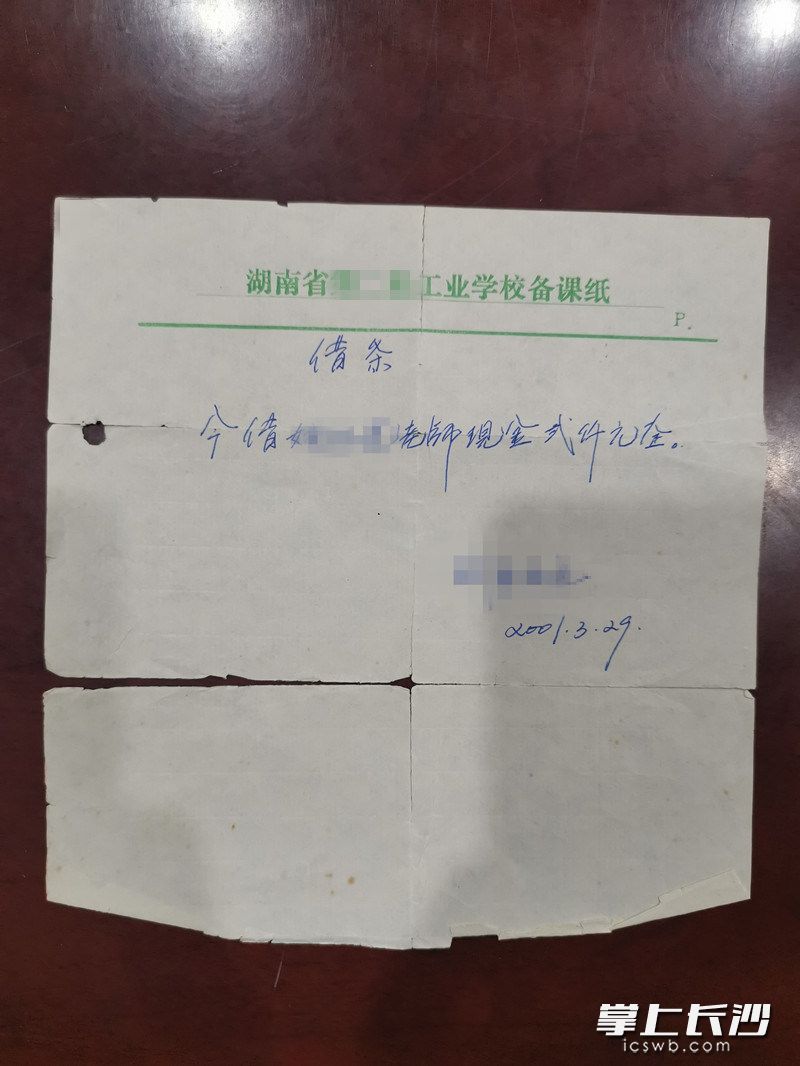 湖南省 工业学校备课纸
P.
借条
今借 老师现金贰仟元全。
2001.3.29.
掌上长沙
icswb.com